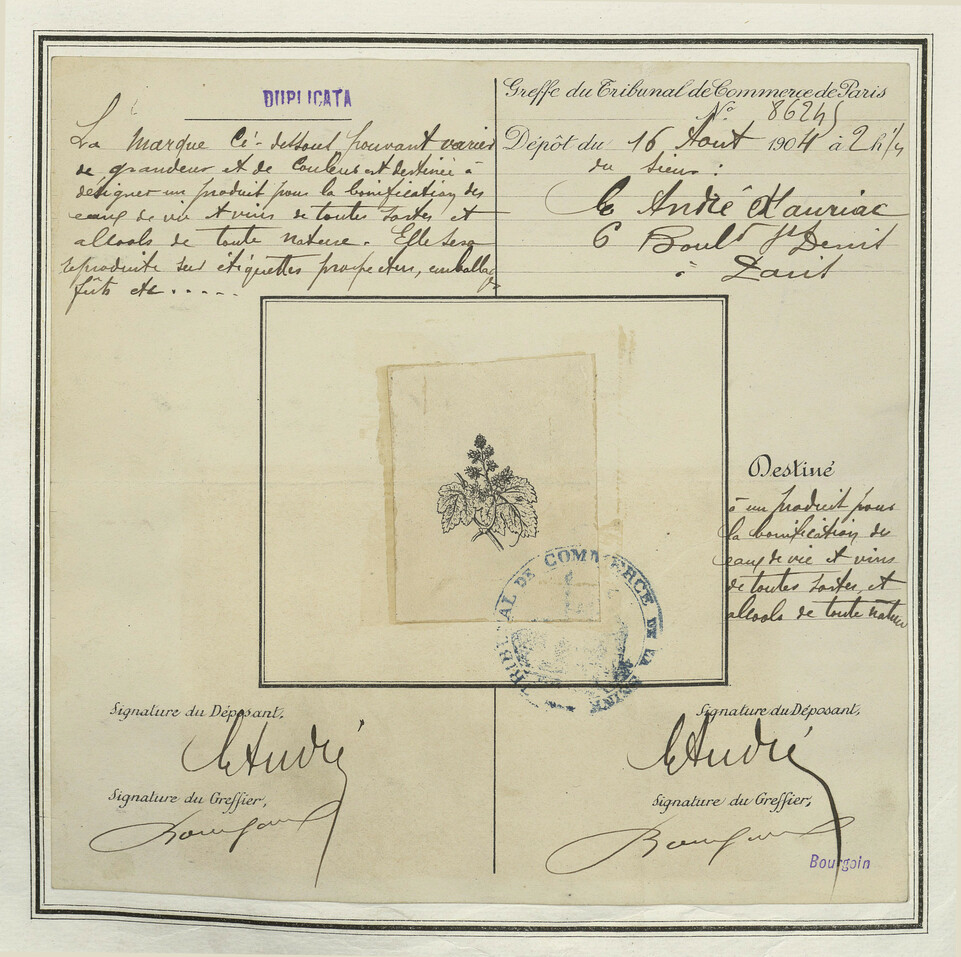 DUPLICATA
La marque ci-dessous pouvant varier
de grandeur et de couleur est destinée à
désigner un produit pour la bonification des
eaux de vie et vins de toutes sortes et
alcools de toute nature. Elle sera
reproduite sur étiquettes prospectus, emballages
fûts etc.....
Greffe du Tribunal de Commerce de Paris
N° 86245
Dépôt du 16 Aout 1904 à 2h 1/4
du sieur :
André Mauriac
6 Boul^d S^t Denis
à Paris
TRIBUNAL DE COMMERCE DE LA SEINE
Destiné
à un produit pour
la bonification des
eaux de vie et vins
de toutes sortes, et
alcools de toute nature
Signature du Déposant,
André
Signature du Greffier,
Bourgoin
Signature du Déposant,
André
Signature du Greffier,
Bourgoin
Bourgoin